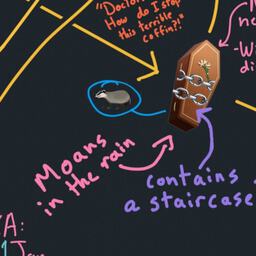 "Doctor,
How do I stop
this terrible
coffin?!"
Moans
in the rain
contains
a staircase